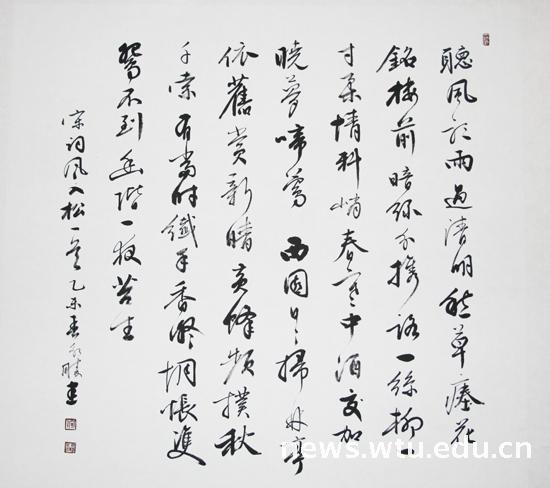 聽風聽雨過清明愁草瘞花
銘樓前暗綠分攜路一絲柳一
寸柔情料峭春寒中酒交加
曉夢啼鶯 西園日日掃林亭
依舊賞新晴黃蜂頻撲秋
千索有當時纖手香凝惆悵雙
鴛不到幽階一夜苔生
宋詞風入松一首乙未春書
news.wtu.edu.cn